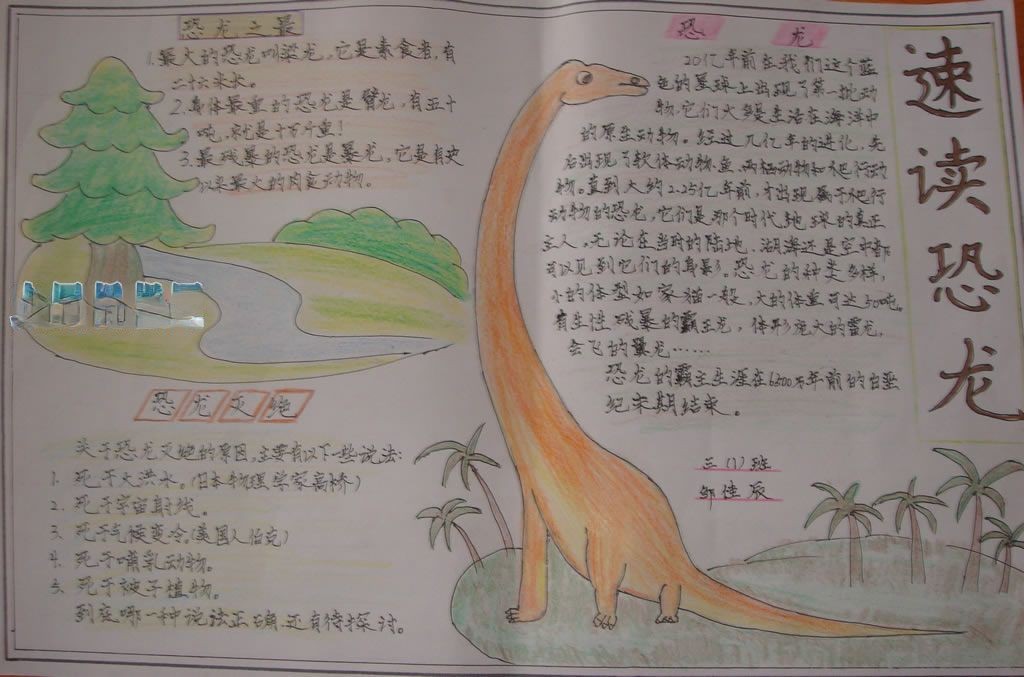 速读恐龙
恐龙之最
1.最大的恐龙叫梁龙,它是素食者,有
二十六米长。
2.身体最重的恐龙是臂龙,有五十
吨,就是十万斤重!
3.最残暴的恐龙是暴龙,它是有史
以来最大的肉食动物。
恐龙灭绝
关于恐龙灭绝的原因,主要有以下一些说法:
1.死于大洪水。(日本物理学家高桥)
2.死于宇宙射线。
3.死于气候变冷(美国人伯克)
4.死于哺乳动物。
5.死于被子植物。
到底哪一种说法正确,还有待探讨。
恐龙
20亿年前在我们这个蓝
色的星球上出现了第一批动
物,它们大多是生活在海洋中
的原生动物。经过几亿年的进化,先
后出现了软体动物、鱼、两栖动物和爬行动
物。直到大约2.25亿年前,才出现属于爬行
动物的恐龙,它们是那个时代地球的真正
主人,无论在当时的陆地、湖海还是空中都
可以见到它们的身影。恐龙的种类多样,
小的体型如家猫一般,大的体重可达50吨。
有生性残暴的霸王龙,体形庞大的雷龙,
会飞的翼龙……
恐龙的霸主生涯在6500万年前的白垩
纪末期结束。
三(1)班
邹佳辰